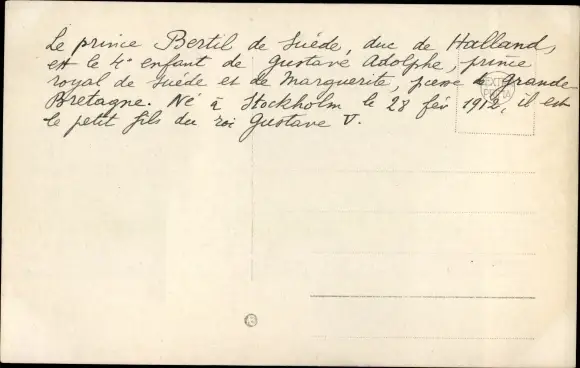 Le prince Bertil de Suède, duc de Halland,
est le 4e enfant de Gustave Adolphe, prince
royal de Suéde et de Marguerite, de Grande
Bretagne. Né à Stockholm le 28 fév 1912, il est
le petit fils du roi Gustave V.
EXTRA